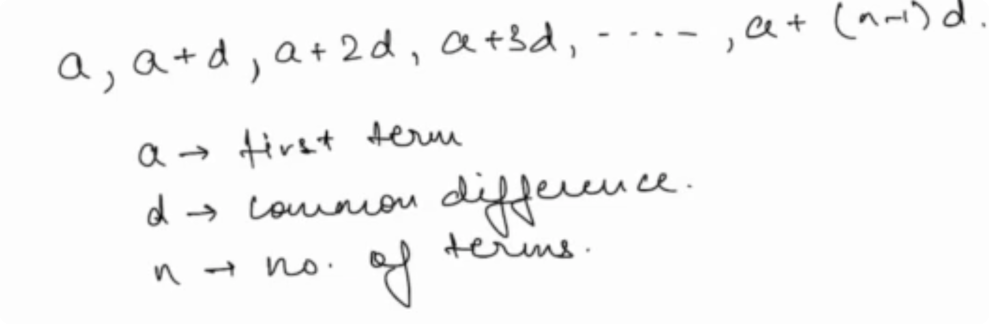 a, a+d, a+2d, a+3d, ----, a+(n-1)d.
a → first term
d → common difference.
n → no. of terms.